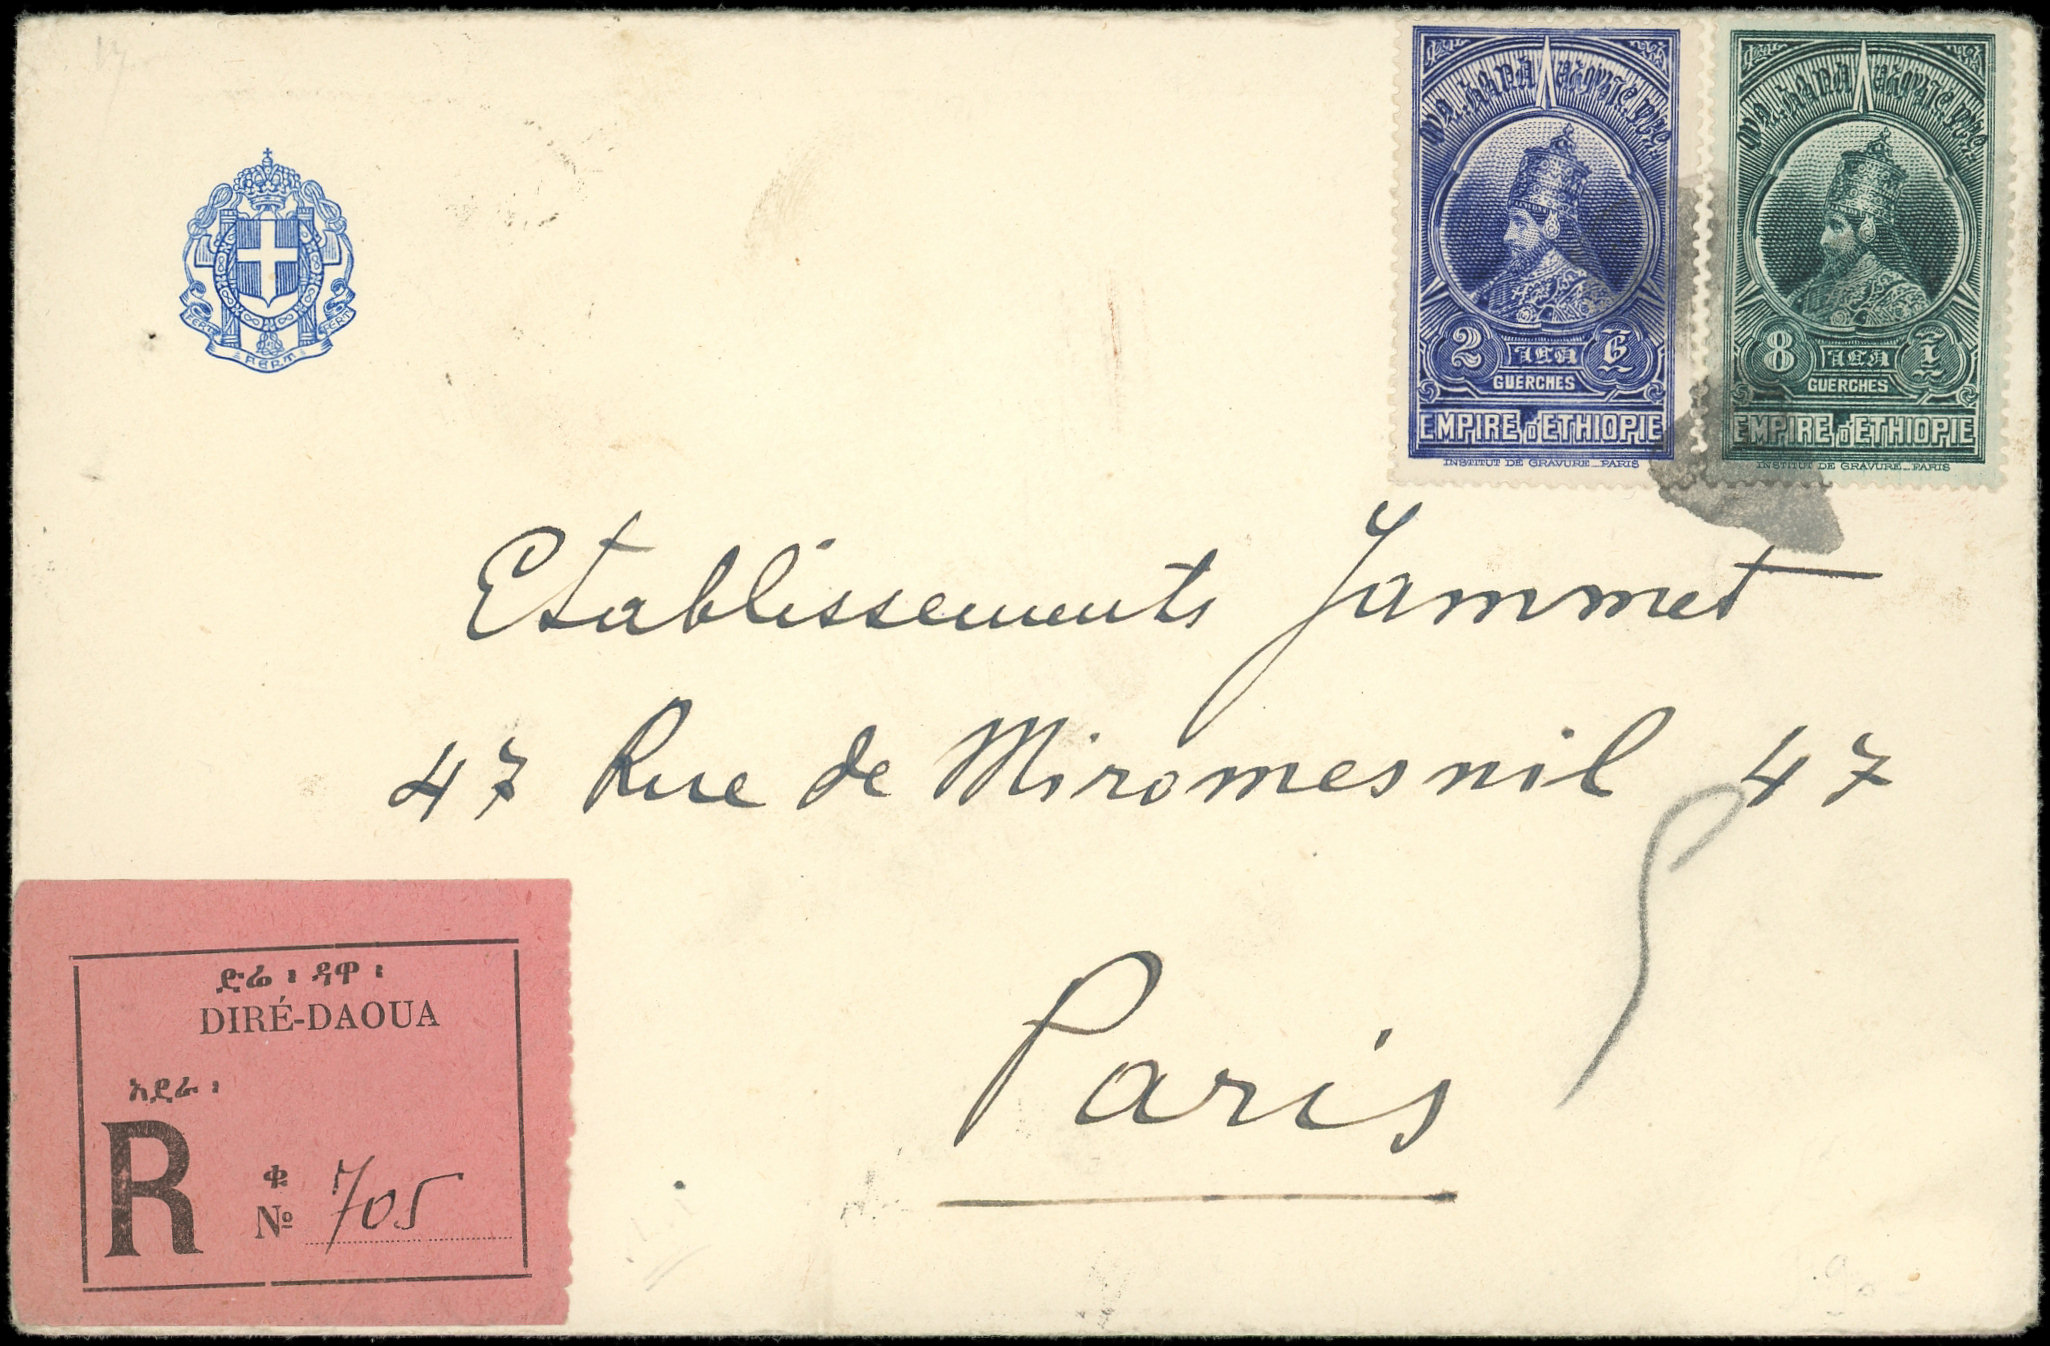 FERT
FERT
FERT
2
፪
GUERCHES
EMPIRE D'ETHIOPIE
INSTITUT DE GRAVURE_PARIS
8
፰
GUERCHES
EMPIRE D'ETHIOPIE
INSTITUT DE GRAVURE_PARIS
Etablissements Jammet
47 Rue de Miromesnil 47
Paris
ድሬ ፡ ዳዋ ፡
DIRÉ-DAOUA
አደራ ፡
R
ቁ
№ 705